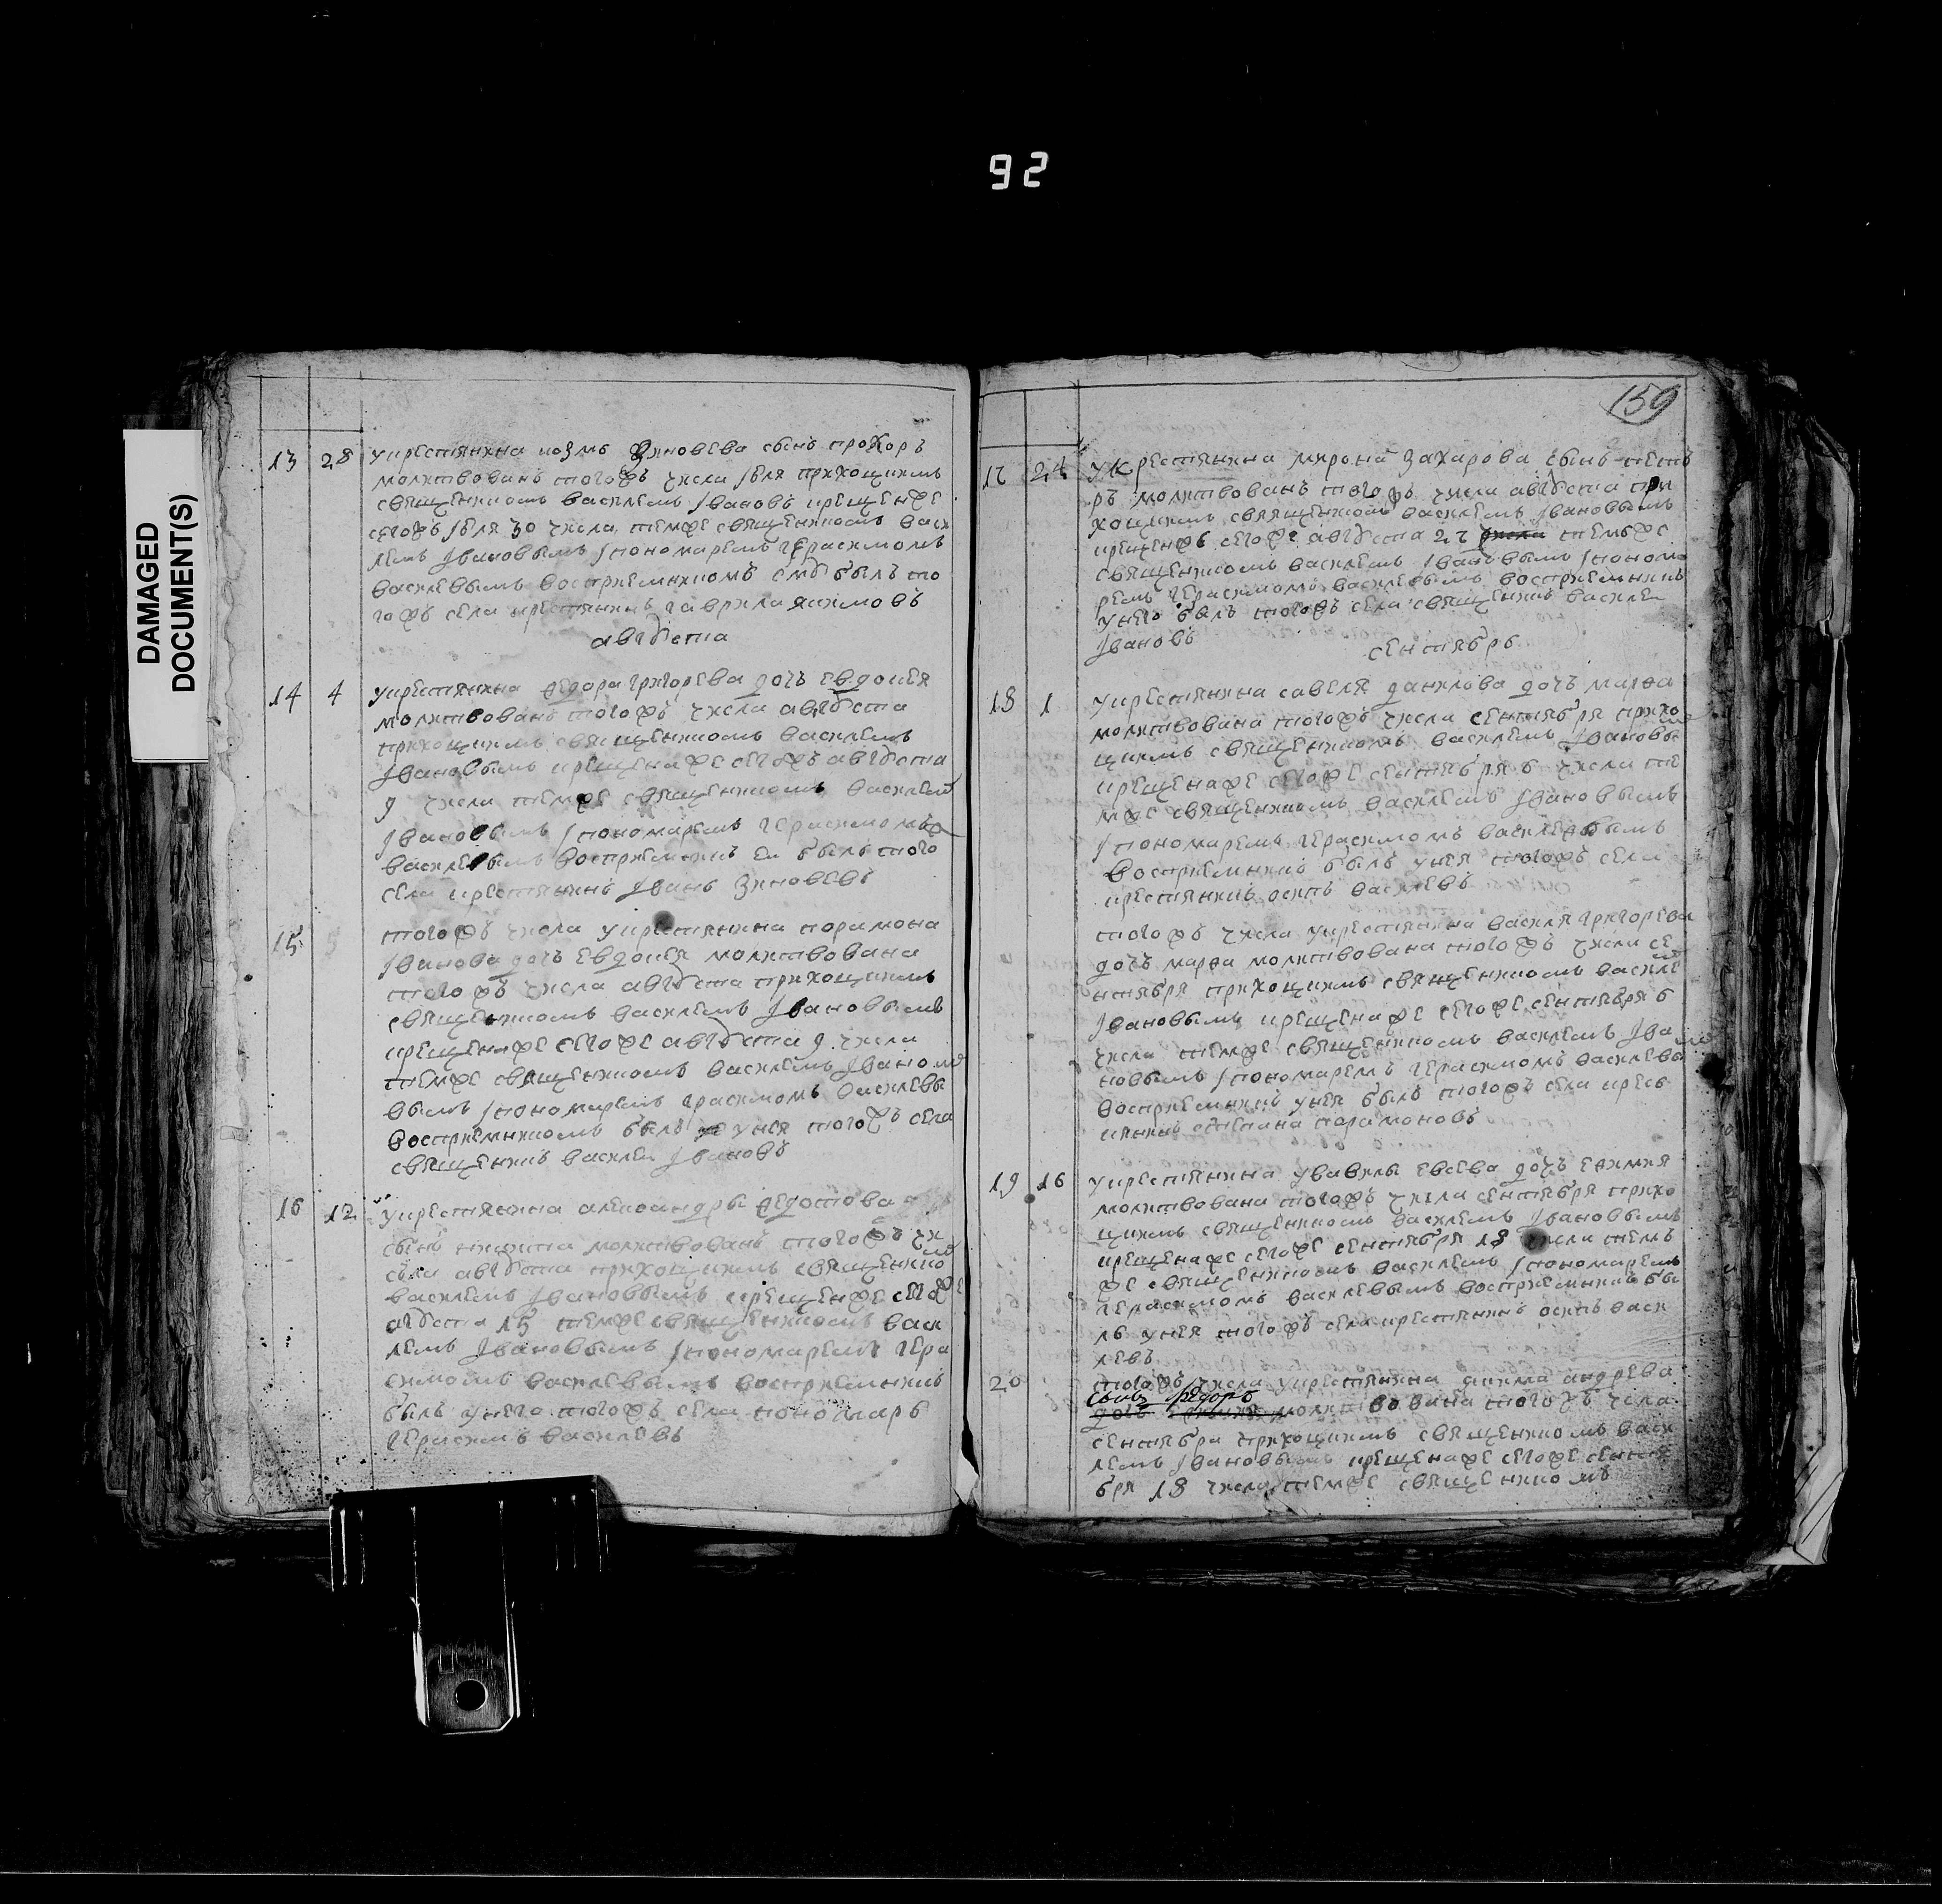 92
DAMAGED
DOCUMENT(S)
13 28 у крестянина козмы Зиновева сынъ прохоръ
молитвованъ тогожъ числа июля приходцкимъ
священникомъ василемъ Ивановъ крещенже
сегожъ июля 30 числа темже священникомъ васи
лемъ Ивановымъ и пономаремъ герасимомъ
василевымъ восприемникомъ ему былъ то
гожъ села крестянинъ гаврила якимовъ
августа
14 4 у крестянина федора григорева дочь евдокея
молитвована тогожъ числа августа
приходцкимъ священникомъ василемъ
Ивановымъ крещенаже сегожъ августа
9 числа темже священникомъ василемъ
Ивановымъ и пономаремъ герасимомъ
василевымъ восприемникъ ей былъ того
села крестянинъ Иванъ Зиновевъ
15 тогожъ числа у крестянина парамона
Иванова дочь евдокея молитвована
тогожъ числа августа приходцкимъ
священникомъ василемъ Ивановымъ
крещенаже сегоже августа 9 числа
темже священникомъ василемъ Ивано
вымъ и пономаремъ герасимомъ василевы
восприемникомъ былъ у нея тогожъ села
священникъ василеи Ивановъ
16 12 у крестянина александры федотова
сынъ никита молитвованъ тогожъ чи
сла августа приходцкимъ священнико
василемъ Ивановымъ крещенже сегоже
августа 15 темже священникомъ васи
лемъ Ивановымъ и пономаремъ гера
симомъ василевымъ восприемникъ
былъ у него тогожъ села пономарь
герасимъ василевъ
159
17 24 у крестянина мирона захарова сынъ
молитвованъ тогожъ числа августа при
ходцкимъ священникомъ василемъ Ивановымъ
крещенже сегоже августа 27 числа темъже
священникомъ василемъ Ивановымъ и понома
ремъ герасимомъ василевымъ восприемникъ
у него былъ тогожъ села священникъ василеи
Ивановъ
сентябрь
18 1 у крестянина савеля данилова дочь марфа
молитвована тогожъ числа сентября прихо
цкимъ священникомъ василемъ Ивановы
крещенаже сегоже сентября 6 числа те
мже священникомъ василемъ Ивановымъ
и пономаремъ герасимомъ василевымъ
восприемникъ былъ у нея тогожъ села
крестянинъ осипъ василевъ
тогожъ числа у крестянина василя григорева
дочь марфа молитвована тогожъ числа се
нтября приходцкимъ священникомъ василе
Ивановымъ крещенаже сегоже сентября 6
числа темже священникомъ василемъ Ива
новымъ и пономаремъ герасимомъ василевы
восприемникъ у нея былъ тогожъ села крес
янинъ степана парамоновъ
19 16 у крестянина у вавилы евсева дочь ефимия
молитвована тогожъ числа сентября прихо
цкимъ священникомъ василемъ Ивановымъ
крещенаже сегоже сентября 18 числа темъ
же священникомъ василемъ и пономаремъ
герасимомъ василевымъ восприемникъ бы
лъ у нея тогожъ села крестянинъ осипъ васи
левъ
20 тогожъ числа у крестянина якима андрева
сынъ федоръ
дочь молитвована тогожъ числа
сентября приходцкимъ священникомъ васи
лемъ Ивановымъ крещенаже сегоже сентя
бря 18 числа темже священникомъ